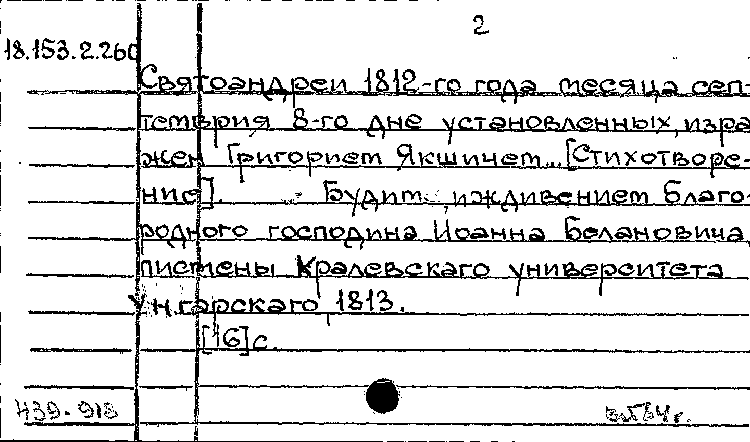 2
18.153.2.260
Святоандреи 1812-го года месяца сеп-
темврия 8-го дне установленных, изра
жен Григорием Якшичем...[Стихотворе-
ние]. - Будим, иждивением благо-
родного господина Иоанна Белановича,
писмены Кралевскаго университета
Унгарскаго, 1813.
[16]с.
439-918